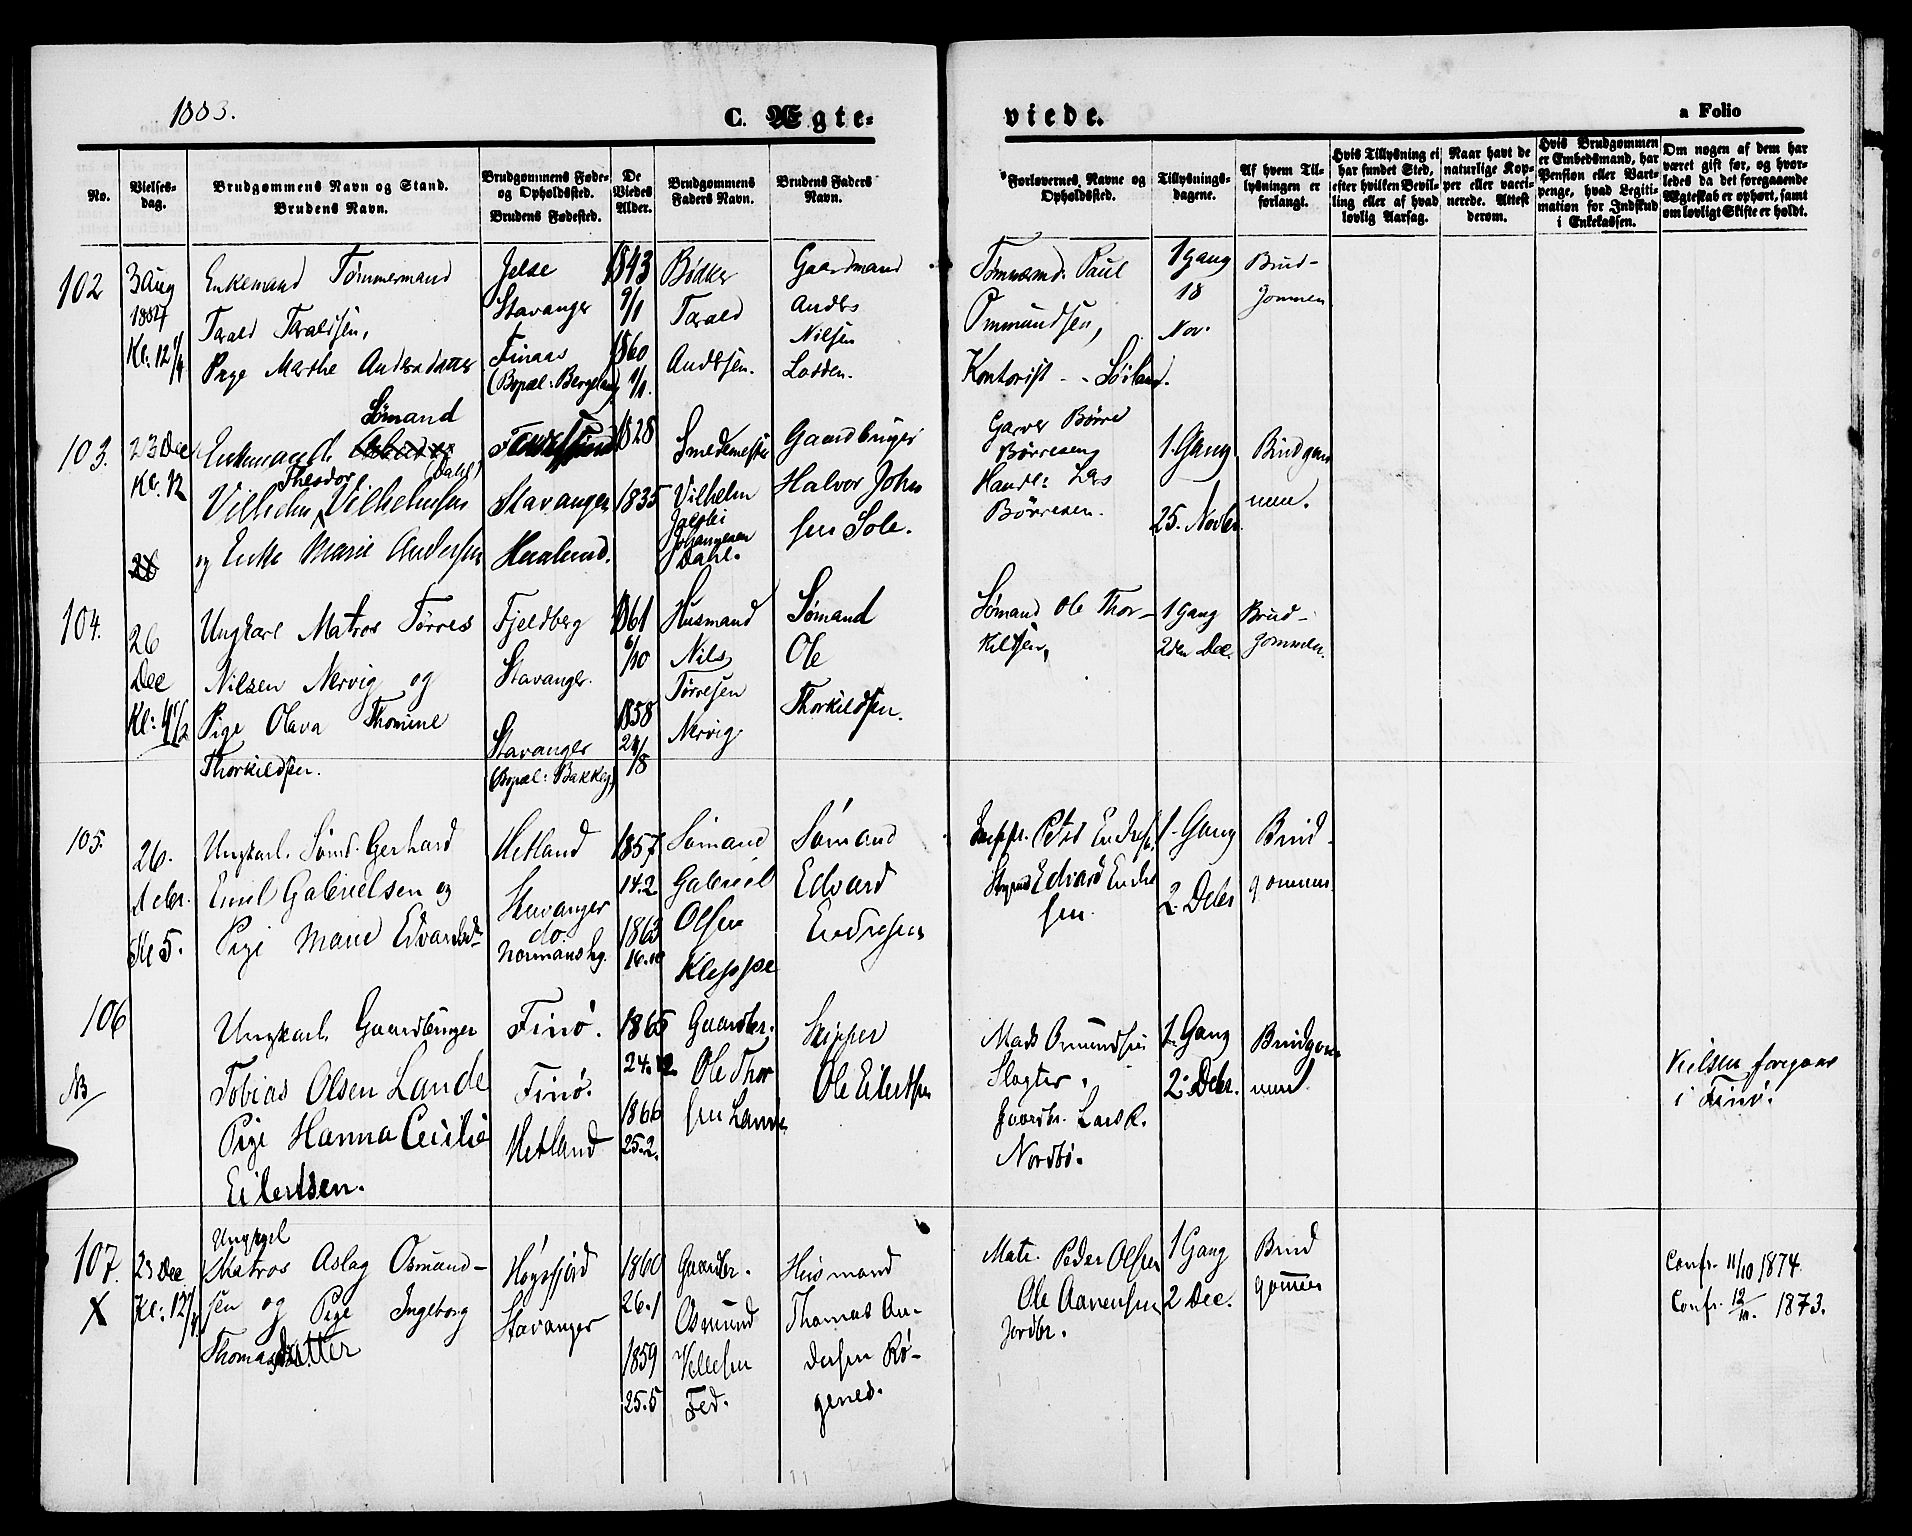 1883.
C. Ægte-
viede.
a Folio
No.
Vielses-
dag.
Brudgommens Navn og Stand.
Brudens Navn.
Brudgommens Føde-
og Opholdssted.
Brudens Fødested.
De
Viedes
Alder.
Brudgommens
Faders Navn.
Brudens Faders
Navn.
Forlovernes Navne og
Opholdssted.
Tillysnings-
dagene.
Af hvem Til-
lysningen er
forlangt.
Hvis Tillysning ei
har fundet Sted,
efter hvilken Bevil-
ling eller af hvad
lovlig Aarsag.
Naar havt de
naturlige Kop-
per eller vacci-
nerede. Attest
derom.
Hvis Brudgommen
er Embedsmand, har
Pension eller Vart-
penge, hvad Legiti-
mation for Indskud
i Enkekassen.
Om nogen af dem har
været gift før, og hvor-
ledes da det foregaaende
Ægteskab er ophørt, samt
om lovligt Skifte er holdt.
102
3 Aug
1887
Kl: 12 1/4
Enkemand Tømmermand
Tarald Taraldsen,
Pige Marthe Andersdatter
Jelse
Stavanger
Finaas
(Bopæl: Bergeland)
1843
9/1
1860
1/1.
Bødker
Tarald
Andersen.
Gaardmand
Anders
Nilsen
Lodden.
Tømmermd. Paul
Ommundsen,
Kontorist - - Søiland.
1 Gang
18
Nov.
Brud-
gommen
103.
23 Dec
Kl. 12
28
Sømand
Enkemand
Theodor (Dahl)
Vilhelm Vilhelmsen
og Enke Marie Andersen
Stavanger
Haaland.
1828
1835
Smedemester
Vilhelm
Jacobi
Johannesen
Dahl.
Gaardbruger
Halvor John
sen Sole.
Garver Børre
Børresen
Handl: Lars
Børresen.
1. Gang
25. Novbr.
Brudgom
men.
104.
26
Dec
Kl: 4 1/2
Ungkarl Matros Tørres
Nilsen Nervig og
Pige Olava Thomine
Thorkildsen.
Fjeldberg
Stavanger.
Stavanger
(Bopæl: Bakkeg.)
1861
6/10
1858
24/8
Husmand
Nils
Tørresen
Nervig
Sømand
Ole
Thorkildsen.
Sømand Ole Thor-
kildsen,
1 Gang
2den Dec.
Brud-
gommen.
105.
26.
Decbr.
Kl 5.
Ungkarl. Sømd. Gerhard
Emil Gabrielsen og
Pige Marie Edvardsd.
Hetland
Stavanger
do.
Normansbg.
1857
14.2
1863
16.10
Sømand
Gabriel
Olsen
Kleppe
Sømand
Edvard
Endresen
Peter Endresen.
Styrmd Edvard Endre
sen.
1. Gang
2. Decbr
Brud-
gommen
106
NB
Ungkarl. Gaardbruger
Tobias Olsen Lande
Pige Hanna Cecilie
Eilertsen.
Finø.
Finø.
Hetland
1865
24.12
1866
25.2.
Gaardbr.
Ole Thor
sen Lande
Skipper
Ole Eilertsen
Mads Omundsen
Slagter.
Gaardbr. Lars R.
Nordbø.
1. Gang
2. Decbr.
Brudgom
men.
Vielsen foregaar
i Finø.
107.
X
23 Dec
Kl: 12 1/4
Ungkarl
Matros Aslag Osmund-
sen og Pige Ingeborg
Thomasdatter
Høgsfjord
Stavanger
1860
26.1
1859
25.5
Gaardbr.
Osmund
Fed.
Husmand
Thomas An-
dersen Rø-
genes.
Matr. Peder Olsen
Ole Aanensen
Jordbr.
1 Gang
2 Dec.
Brud
gommen
Confr. 11/10 1874.
Confr. 12/10. 1873.